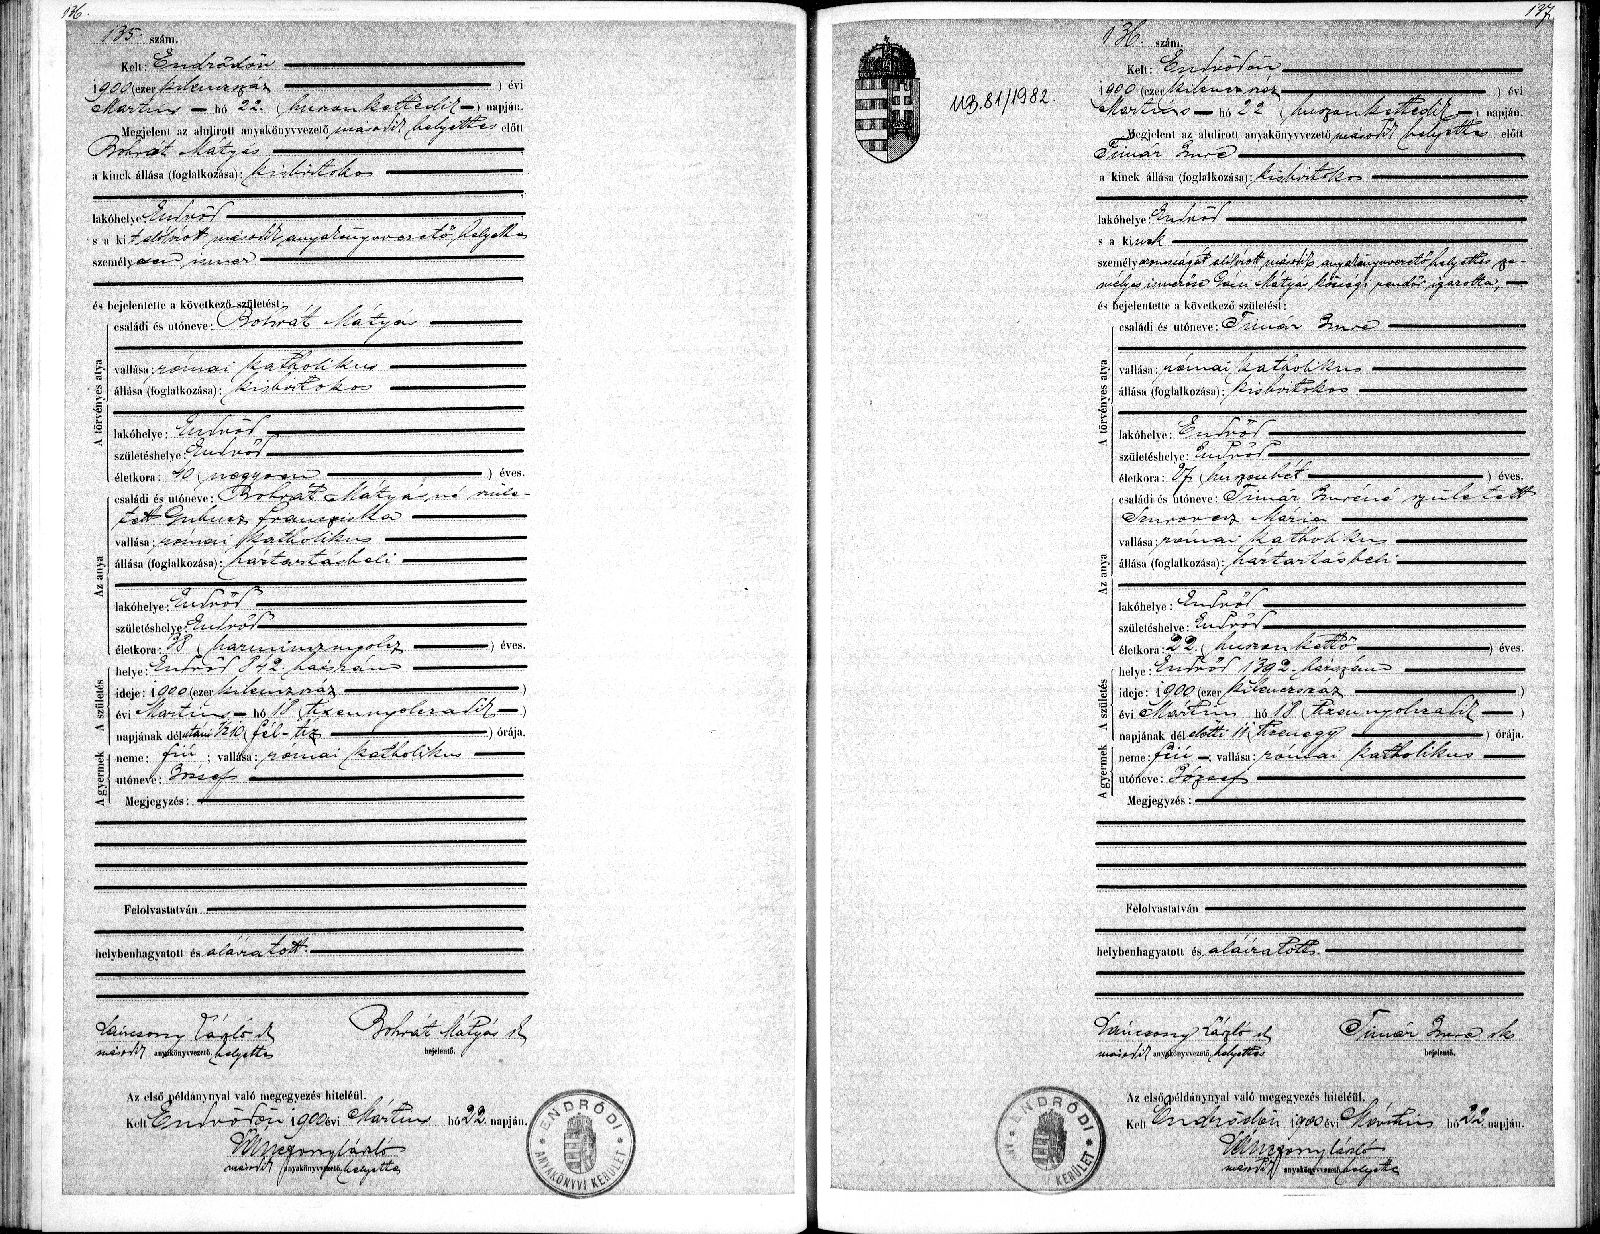 136.
135. szám.
Kelt: Endrődön
1900 (ezer kilenczszáz ) évi
Martius hó 22. (huszonkettedik ) napján.
Megjelent az alulirott anyakönyvvezető második helyettes előtt
Mátyás
a kinek állása (foglalkozása): kisbirtokos
lakóhelye Endrőd
s a kit alólirott második anyakönyvvezető helyettes
személyesen ismer
és bejelentette a következő születést:
A törvényes atya
családi és utóneve: Mátyás
vallása: római katholikus
állása (foglalkozása): kisbirtokos
lakóhelye: Endrőd
születéshelye: Endrőd
életkora: 40 (negyven ) éves.
Az anya
családi és utóneve: Mátyásné szüle-
tett Francziska
vallása: római katholikus
állása (foglalkozása): háztartásbeli
lakóhelye: Endrőd
születéshelye: Endrőd
életkora: 38 (harmincznyolcz ) éves.
A születés
helye: Endrőd 812 házszám
ideje: 1900 (ezer kilenczszáz )
évi Martius hó 18 (tizennyolczadik )
napjának délutáni ½10 (fél-tiz ) órája.
A gyermek
neme: fiú ; vallása: római katholikus
utóneve: József
Megjegyzés:
Felolvastatván
helybenhagyatott és aláiratott.
László
Mátyás
második anyakönyvvezető helyettes
bejelentő.
Az első példánynyal való megegyezés hiteléül.
Kelt Endrődön 1900 évi Mártius hó 22 napján.
László
második anyakönyvvezető helyettes
ENDRŐDI ANYAKÖNYVI KERÜLET
137.
UB.81/1982.
136. szám.
Kelt: Endrődön
1900 (ezer kilenczszáz ) évi
Martius hó 22 (huszonkettedik ) napján.
Megjelent az alulirott anyakönyvvezető második helyettes előtt
Timár Imre
a kinek állása (foglalkozása): kisbirtokos
lakóhelye: Endrőd
s a kinek
személyazonosságát alólirott második anyakönyvvezető helyettes sze-
mélyes ismerőse Mátyás községi rendőr igazolta,
és bejelentette a következő születést:
A törvényes atya
családi és utóneve: Timár Imre
vallása: római katholikus
állása (foglalkozása): kisbirtokos
lakóhelye: Endrőd
születéshelye: Endrőd
életkora: 27 (huszonhét ) éves.
Az anya
családi és utóneve: Timár Imréné született
Mária
vallása: római katholikus
állása (foglalkozása): háztartásbeli
lakóhelye: Endrőd
születéshelye: Endrőd
életkora: 22 (huszonkettő ) éves.
A születés
helye: Endrőd 1392 házszám
ideje: 1900 (ezer kilenczszáz )
évi Martius hó 18 (tizennyolczadik )
napjának délelőtti 11 (tizenegy ) órája.
A gyermek
neme: fiú ; vallása: római katholikus
utóneve: József
Megjegyzés:
Felolvastatván
helybenhagyatott és aláiratott.
László
Timár Imre
második anyakönyvvezető helyettes
bejelentő.
Az első példánynyal való megegyezés hiteléül.
Kelt Endrődön 1900 évi Mártius hó 22 napján.
László
második anyakönyvvezető helyettes
ENDRŐDI KERÜLET